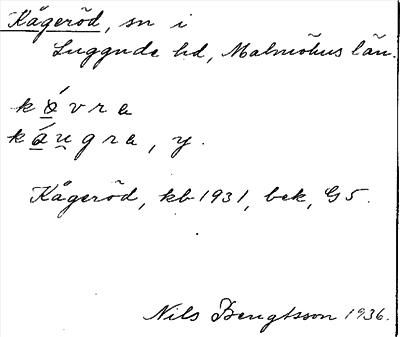 Kågeröd, sn i
Luggude hd, Malmöhus län.
kǿvra
káu̯gra, y.
Kågeröd, kb 1931, bek, G5.
Nils Bengtsson 1936.